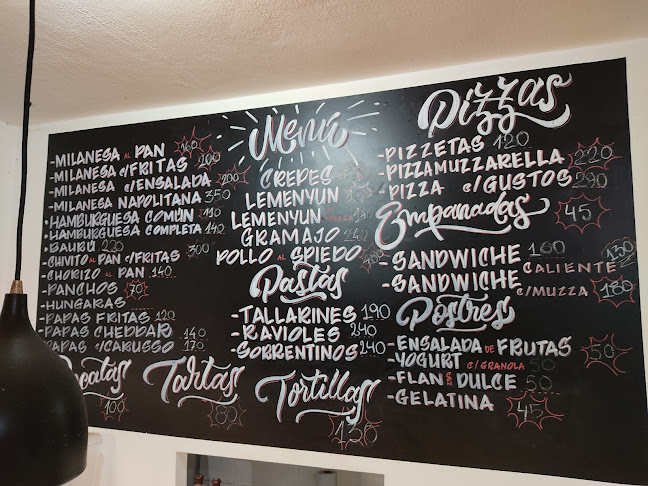 Menú
-MILANESA AL PAN
-MILANESA C/FRITAS 200
-MILANESA C/ENSALADA 200
-MILANESA NAPOLITANA 350
-HAMBURGUESA COMÚN 110
-HAMBURGUESA COMPLETA 140
-BAURÚ 220
-CHIVITO AL PAN C/FRITAS 300
-CHORIZO AL PAN 140
-PANCHOS 70
-HUNGARAS
-PAPAS FRITAS 120
-PAPAS CHEDDAR 140
-PAPAS C/CARUSSO 170
100
Tartas
80
CREPES
LEMENYUN
LEMENYUN
GRAMAJO 240
POLLO AL SPIEDO 480
Pastas
-TALLARINES 190
-RAVIOLES 240
-SORRENTINOS 240
Tortillas
130
Pizzas
-PIZZETAS 120
-PIZZAMUZZARELLA 220
-PIZZA C/GUSTOS 290
Empanadas 45
-SANDWICHE 100
-SANDWICHE CALIENTE 150
C/MUZZA 180
Postres
-ENSALADA DE FRUTAS 50
-YOGURT C/GRANOLA 50
-FLAN DULCE 50
-GELATINA 45